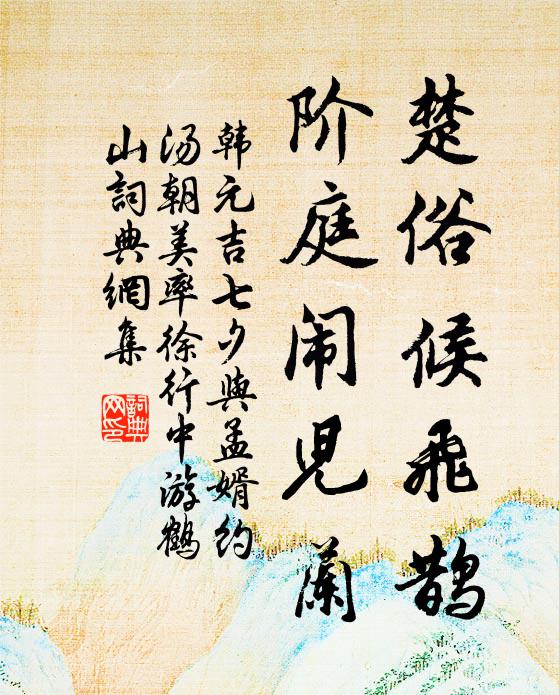 楚俗候飛鵲
阶庭闹児蘭
韩元吉七夕與孟婿約
湯朝美率徐行中游鶴
山詞典網集
詞典
网印